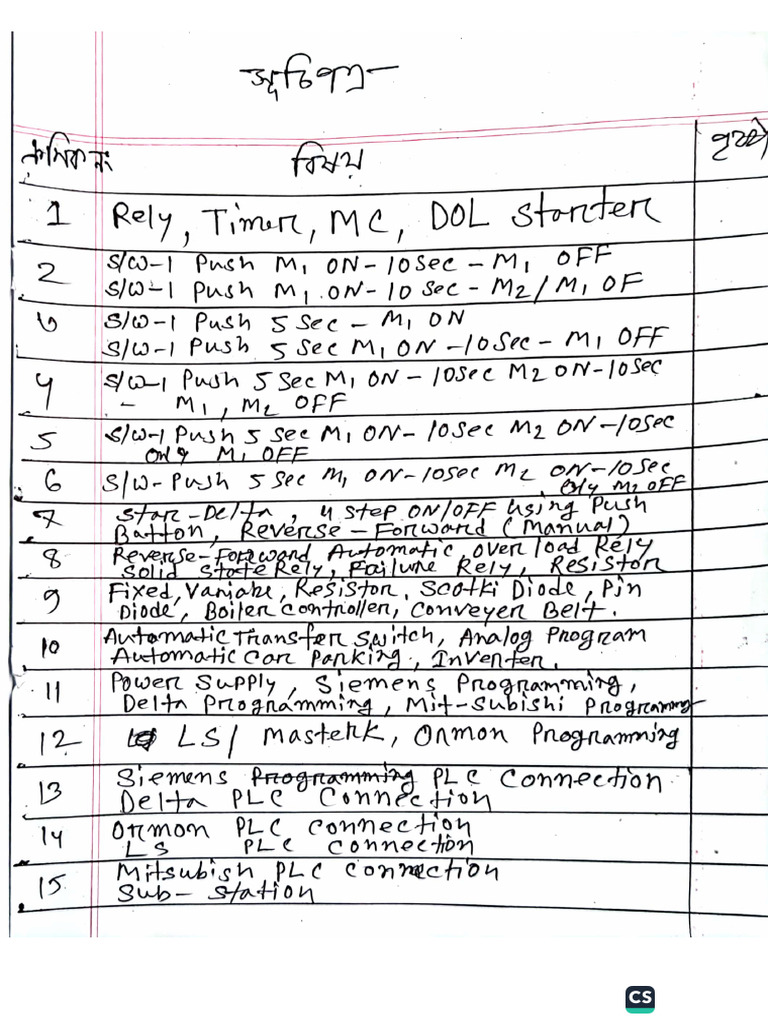 সূচিপত্র-
ক্রমিক নং বিষয় পৃষ্ঠা
1 Rely, Timer, MC, DOL Starter
2 S/W-1 Push M1 ON-10Sec-M1 OFF
S/W-1 Push M1 ON-10 Sec-M2/M1 OF
৩ S/W-1 Push 5 Sec - M1 ON
S/W-1 Push 5 Sec M1 ON-10Sec-M1 OFF
4 S/W-1 Push 5 Sec M1 ON-10Sec M2 ON-10Sec
- M1, M2 OFF
5 S/W-1 Push 5 Sec M1 ON-10Sec M2 ON-10Sec
M1 OFF
6 S/W-Push 5 Sec M1 ON-10Sec M2 ON-10Sec
Oly M2 OFF
7 Star-Delta, 4 Step ON/OFF Using Push
Batton, Reverse-Forward (Manual)
8 Reverse-Forward Automatic, over load Rely
Solid State Rely, Failure Rely, Resistor
9 Fixed, Variabe, Resistor, Scotki Diode, Pin
Diode, Boiler Controller, Conveyer Belt.
10 Automatic Transfer Switch, Analog Program
Automatic Car Parking, Inverter.
11 Power Supply, Siemens Programming,
Delta Programming, Mit-Subishi Programming
12 LS/ Masterk, Ormon Programming
13 Siemens Programming PLC Connection
Delta PLC Connection
14 Ormon PLC Connection
LS PLC Connection
15 Mitsubish PLC Connection
Sub-Station
CS